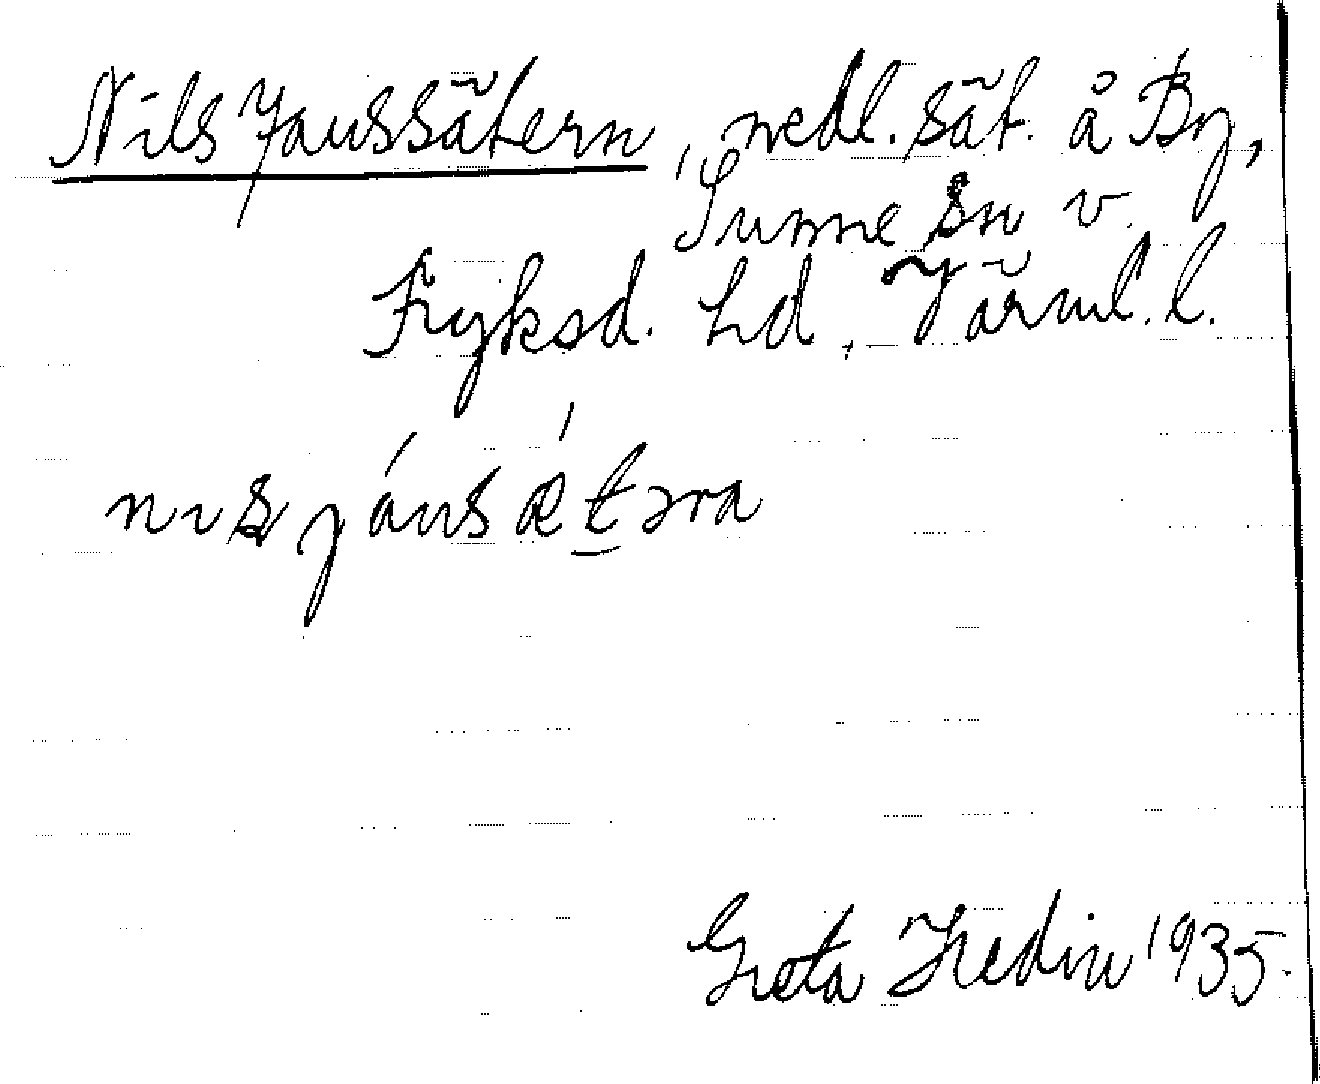 Nils Janssätern, nedl. sät. å By,
Sunne sn v.
Fryksd. hd, Värml. l.
nɪs jánsǽt̠əra
Greta Hedin 1935.